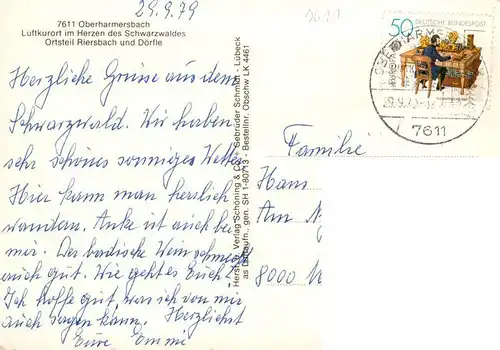 29.9.79
7611 Oberharmersbach
Luftkurort im Herzen des Schwarzwaldes
Ortsteil Riersbach und Dörfle
Herzliche Grüsse aus dem
Schwarzwald. Wir haben
sehr schönes sonniges Wetter
Hier kann man herrlich
wandern. Anke ist auch bei
mir. Der badische Wein schmeckt
auch gut. Wie geht es Euch?
Ich hoffe gut, was ich von mir
auch sagen kann. Herzlichst
Eure Emmi
Herst. u. Verlag Schöning & Co + Gebrüder Schmidt, Lübeck
as Luftaufn., gen. SH 1-80713 - Bestellnr. Obschw LK 4461
50 DEUTSCHE BUNDESPOST
29.9.79
7611
Familie
Hans
Am
8000 M